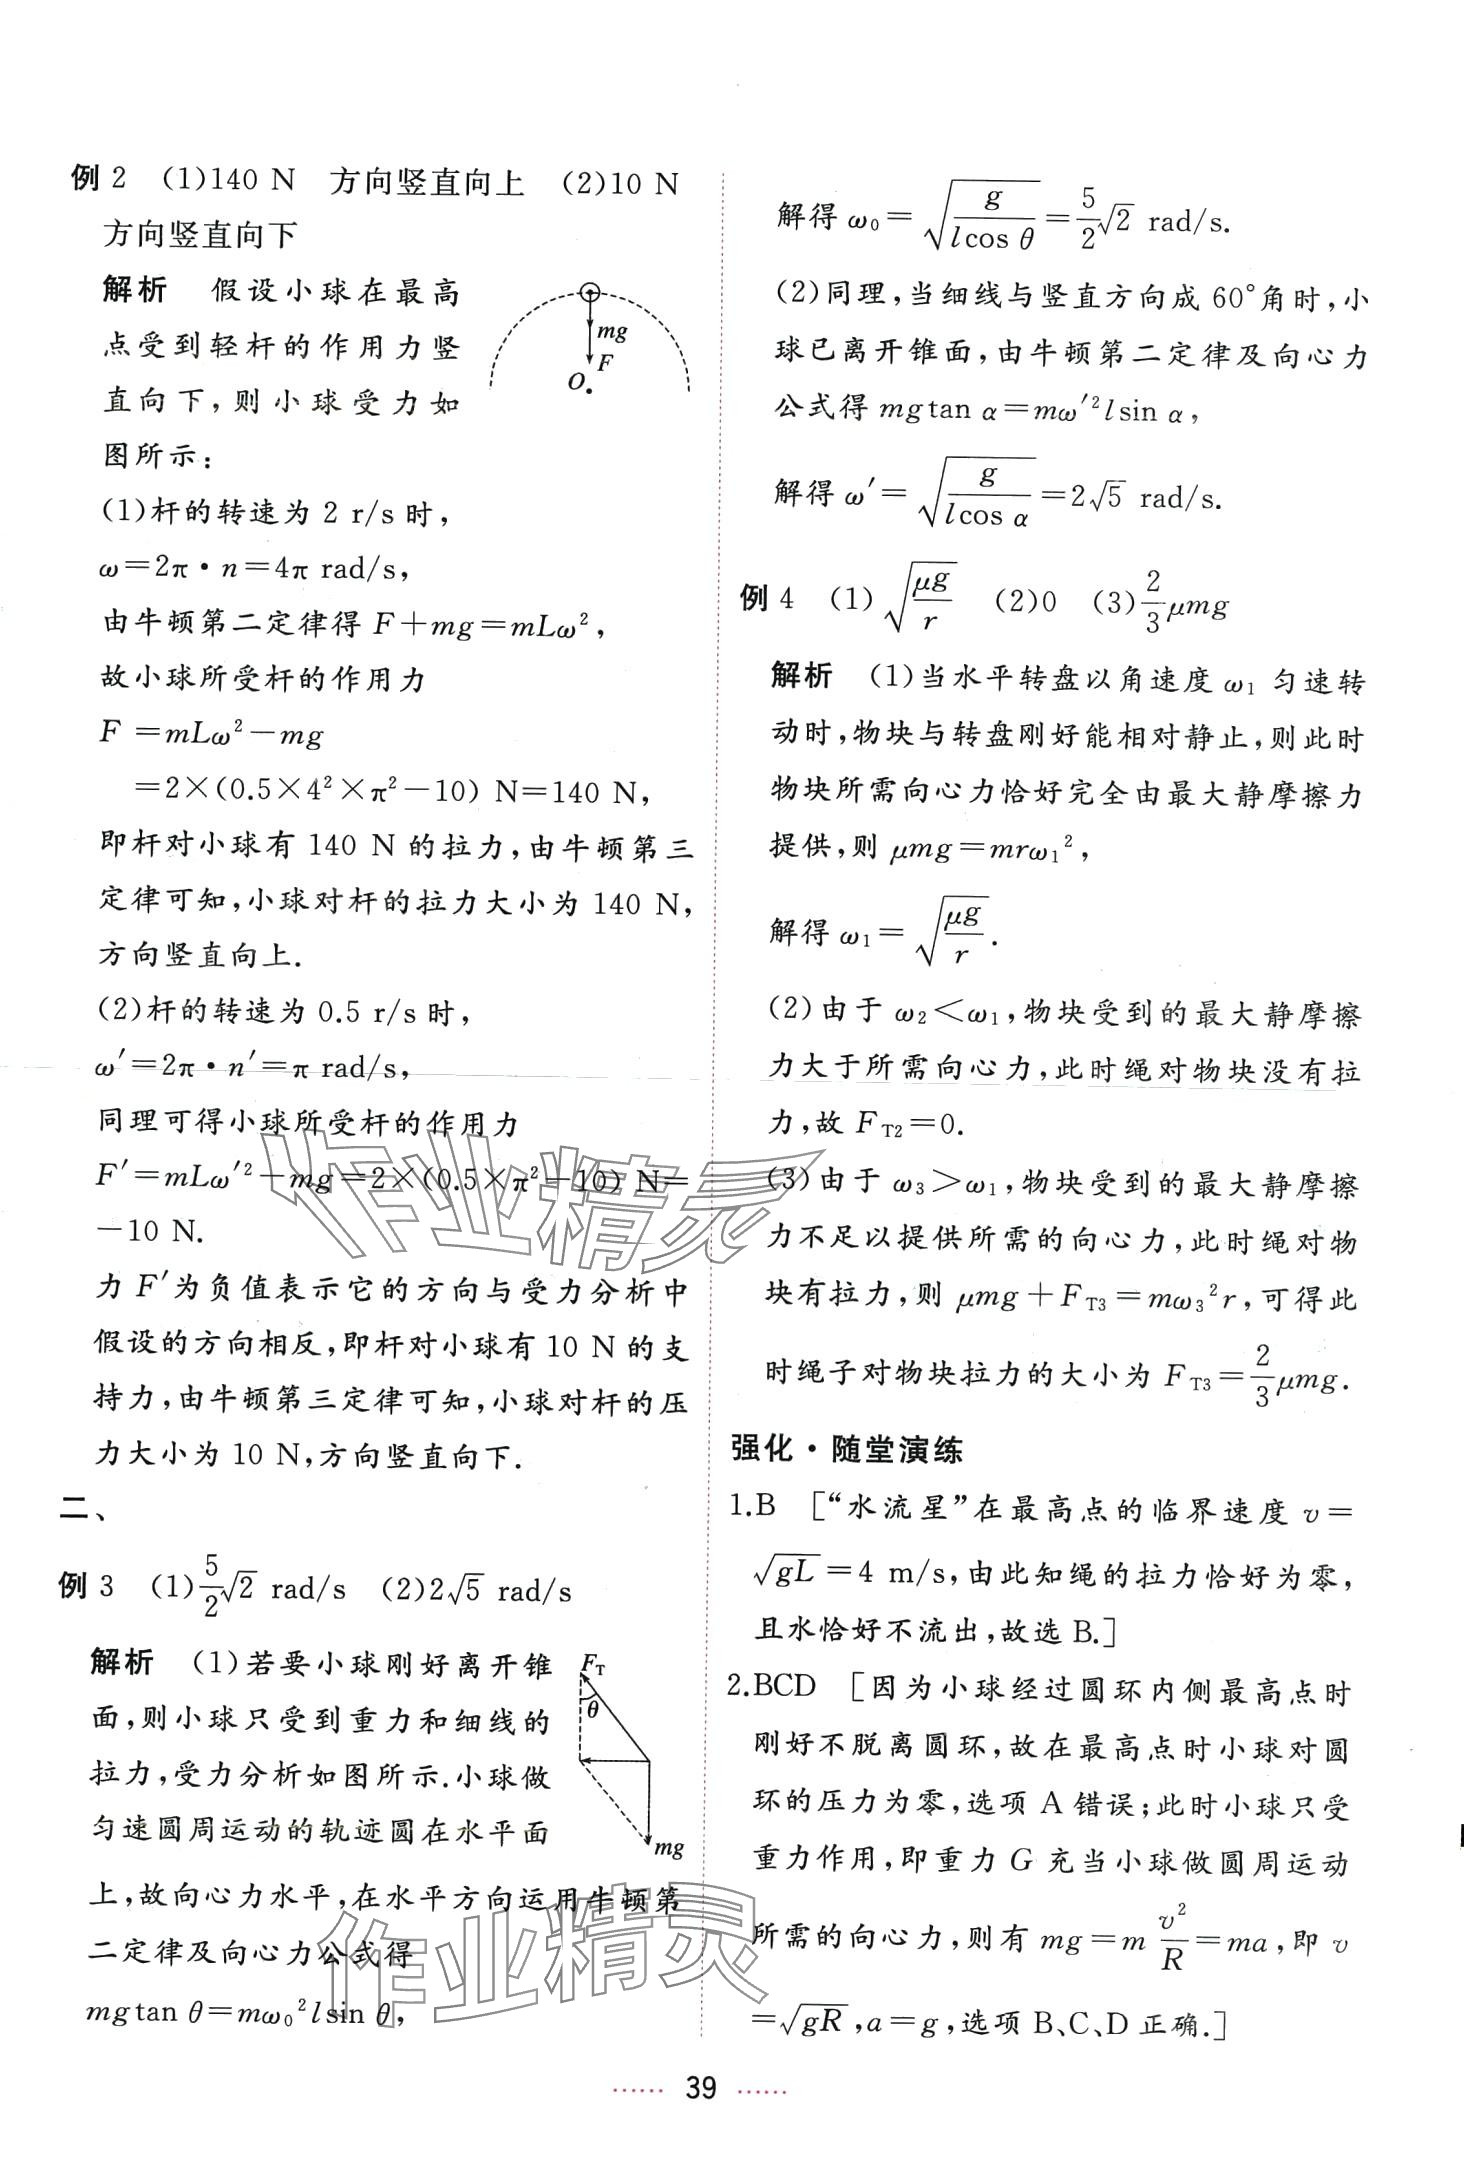 例2 (1)140 N 方向竖直向上 (2)10 N
方向竖直向下
解析 假设小球在最高
点受到轻杆的作用力竖
直向下,则小球受力如
图所示:
mg
F
O
(1)杆的转速为 2 r/s 时,
ω=2π·n=4π rad/s,
由牛顿第二定律得 F+mg=mLω²,
故小球所受杆的作用力
F =mLω²-mg
=2×(0.5×4²×π²-10) N=140 N,
即杆对小球有 140 N 的拉力,由牛顿第三
定律可知,小球对杆的拉力大小为 140 N,
方向竖直向上.
(2)杆的转速为 0.5 r/s 时,
ω′=2π·n′=π rad/s,
同理可得小球所受杆的作用力
F′=mLω′²-mg=2×(0.5×π²-10) N=
-10 N.
力 F′为负值表示它的方向与受力分析中
假设的方向相反,即杆对小球有 10 N 的支
持力,由牛顿第三定律可知,小球对杆的压
力大小为 10 N,方向竖直向下.
二、
例3 (1)5/2√2 rad/s (2)2√5 rad/s
解析 (1)若要小球刚好离开锥
面,则小球只受到重力和细线的
拉力,受力分析如图所示.小球做
匀速圆周运动的轨迹圆在水平面
F_T
θ
mg
上,故向心力水平,在水平方向运用牛顿第
二定律及向心力公式得
mgtan θ=mω₀²lsin θ,
解得 ω₀=√(g/(lcos θ))=5/2√2 rad/s.
(2)同理,当细线与竖直方向成 60°角时,小
球已离开锥面,由牛顿第二定律及向心力
公式得 mgtan α=mω′²lsin α,
解得 ω′=√(g/(lcos α))=2√5 rad/s.
例4 (1)√(μg/r) (2)0 (3)2/3μmg
解析 (1)当水平转盘以角速度 ω₁ 匀速转
动时,物块与转盘刚好能相对静止,则此时
物块所需向心力恰好完全由最大静摩擦力
提供,则 μmg=mrω₁²,
解得 ω₁=√(μg/r).
(2)由于 ω₂<ω₁,物块受到的最大静摩擦
力大于所需向心力,此时绳对物块没有拉
力,故 F_T2=0.
(3)由于 ω₃>ω₁,物块受到的最大静摩擦
力不足以提供所需的向心力,此时绳对物
块有拉力,则 μmg+F_T3=mω₃²r,可得此
时绳子对物块拉力的大小为 F_T3=2/3μmg.
强化·随堂演练
1.B [“水流星”在最高点的临界速度 v=
√gL=4 m/s,由此知绳的拉力恰好为零,
且水恰好不流出,故选 B.]
2.BCD [因为小球经过圆环内侧最高点时
刚好不脱离圆环,故在最高点时小球对圆
环的压力为零,选项 A 错误;此时小球只受
重力作用,即重力 G 充当小球做圆周运动
所需的向心力,则有 mg=m v²/R=ma,即 v
=√gR,a=g,选项 B、C、D 正确.]
39
作业精灵
作业精灵